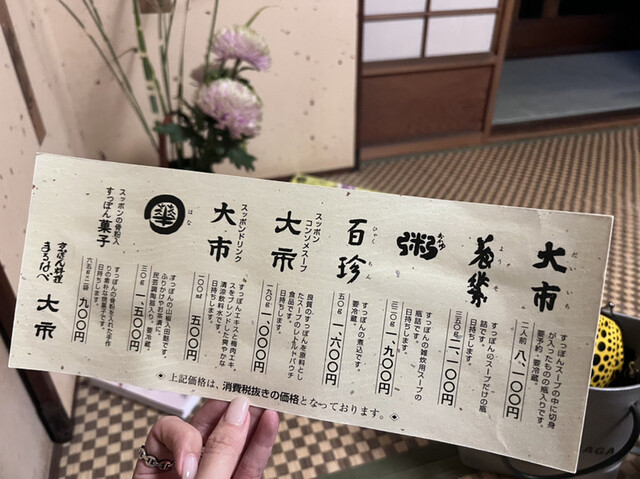 大市
だいいち
すっぽんスープの中に切身
が入ったもの瓶入りです。
要予約・要冷蔵。
二人前 八、一〇〇円
養
すっぽんのスープだけの瓶
詰です。
日持ちします。
三五〇g 二、一〇〇円
粥
おかゆ
すっぽんの雑炊用スープの
瓶詰です。
日持ちします。
三三〇g 一、九〇〇円
百珍
ひゃくちん
すっぽんの煮込です。
要冷蔵。
五〇g 一、六〇〇円
スッポン
コンソメスープ
大市
良質のすっぽんを原料とし
たスープのレトルトパウチ
食品です。
日持ちします。
一九〇g 一、〇〇〇円
スッポンドリンク
大市
すっぽんエキスと梅肉エキ
スをブレンドした爽やかな
清涼飲料水です。
日持ちします。
一〇〇ml 五〇〇円
華
はな
すっぽんの山椒入佃煮です。
ふりかけやお茶漬に。
民芸調陶器入り・要冷蔵。
三〇g 一、五〇〇円
スッポンの骨粉入
すっぽん菓子
すっぽんの骨粉を入れた手作
りの素朴な焼菓子です。
日持ちします。
六五g×二袋 九〇〇円
すっぽん料理
まるなべ 大市
◈上記価格は、消費税抜きの価格となっております。◈
AGA